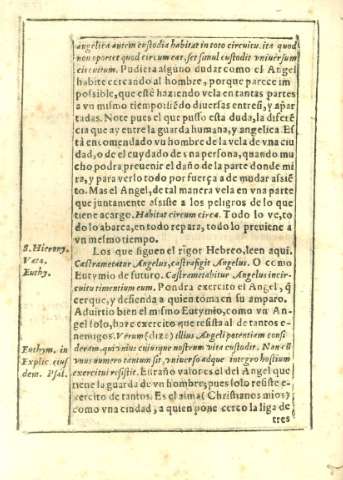 angelica autem custodia habitat in toto circuitu. ita quod
non oporet quod circum eat, set simul custodit vniuersum
circuitum. Pudiera alguno dudar como el Angel
habite cercando al hombre, porque parece im
possible, que estè haziendo vela en tantas partes
a vn mismo tiempo siẽdo diuersas entresi, y apar
tadas. Note pues el que puso esta duda, la diferẽ
cia que ay entre la guarda humana, y angelica. Es
tà encomendado vn hombre de la vela de vna ciu
dad, o de el cuydado de sna persona, quando mu
cho podra preuenir el daño de la parte donde mi
ra, y para verlo todo por fuerça a de mudar assiẽ
to. Mas el Angel, de tal manera vela en vna parte
que juntamente assiste a los peligros de lo que
tiene acargo. Habitat circum circa. Todo lo ve, to
do lo abarca, en todo repara, todo lo preuiene a
vn mesmo tiempo.
S. Hierony.
Vata.
Euthy.
Los que siguen el rigor Hebreo, leen aqui.
Castrametatur Angelus, castrafigit Angelus. O como
Eutymio de futuro. Castrametabitur Angelus incir-
cuitu timentium eum. Pondra exercito el Angel, q̃
cerque, y defienda a quien toma en su amparo.
Aduirtio bien el mismo Eutymio, como vn An-
gel solo, haze exercito que resista al de tantos e-
nemigos. Verum (dize) illius Angeli potentiam consi
deream, qui vnius cuiusque nostrum vitæ custodit. Non eñ
vnus numero tantum sit, vniuerso adque integro hostium
exercitui resistit. Estraño valor es el del Angel que
tiene la guarda de vn hombre; pues solo resiste e-
xercito de tantos. Es el alma (Christianos mios)
como vna ciudad, a quien pone cerco la liga de
tres
Euthym. in
Explic. eius
dem. Psal.